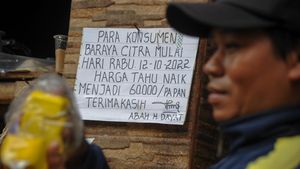 PARA KONSUMEN
BARAYA CITRA MULAI
HARI RABU 12-10-2022
HARGA TAHU NAIK
MENJADI 60000/PAPAN
TERIMAKASIH
ABAH H. DAYAT